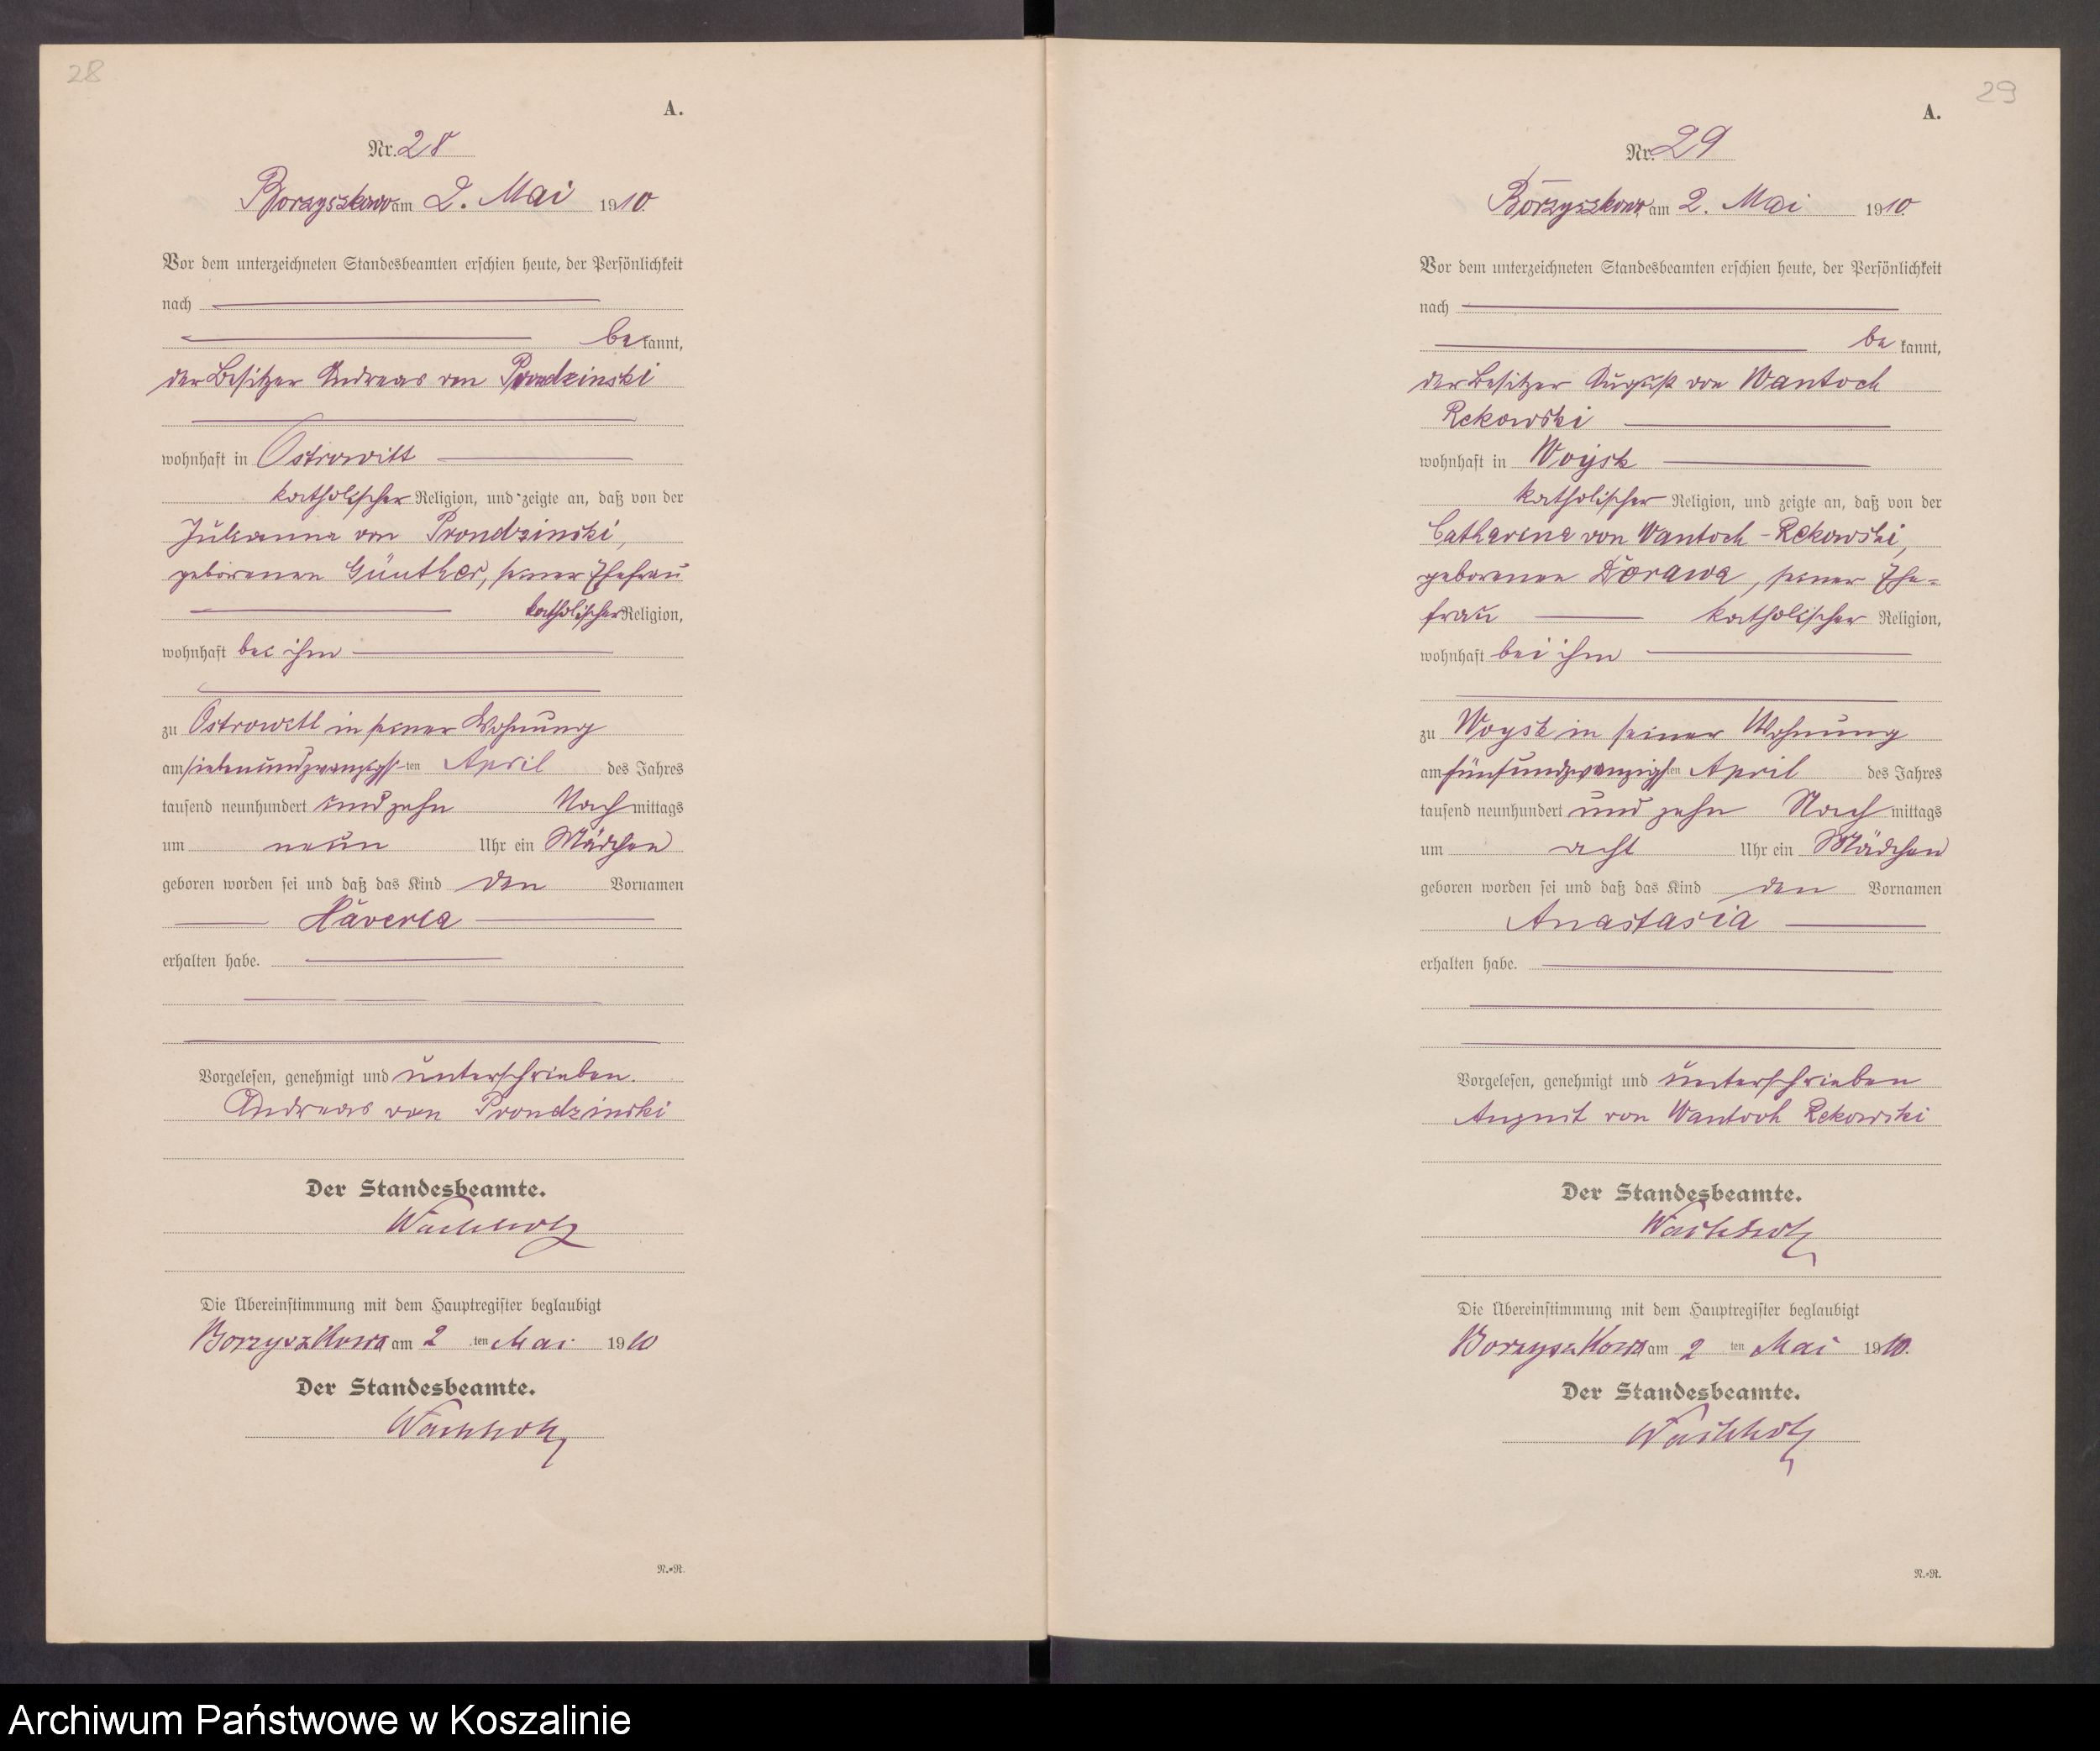 28
A.
Nr. 28
Borzyszkowo am 2. Mai 1910
Vor dem unterzeichneten Standesbeamten erschien heute, der Persönlichkeit
nach
bekannt,
der Besitzer Andreas von Prondzinski
wohnhaft in Ostrowitt
katholischer Religion, und zeigte an, daß von der
Julianna von Prondzinski,
geborenen Günther, seiner Ehefrau
katholischer Religion,
wohnhaft bei ihm
zu Ostrowitt in seiner Wohnung
am siebenundzwanzigsten April des Jahres
tausend neunhundert und zehn Nachmittags
um neun Uhr ein Mädchen
geboren worden sei und daß das Kind den Vornamen
erhalten habe.
Vorgelesen, genehmigt und unterschrieben.
Andreas von Prondzinski
Der Standesbeamte.
Wachholz
Die Übereinstimmung mit dem Hauptregister beglaubigt
Borzyszkowo am 2 ten Mai 1910
Der Standesbeamte.
Wachholz
N.=N.
29
A.
Nr. 29
Borzyszkowo am 2. Mai 1910.
Vor dem unterzeichneten Standesbeamten erschien heute, der Persönlichkeit
nach
bekannt,
der Besitzer August von Wantoch
Rekowski
wohnhaft in Woysk
katholischer Religion, und zeigte an, daß von der
Catharina von Wantoch-Rekowski,
geborenen Dorawa, seiner Ehe=
frau katholischer Religion,
wohnhaft bei ihm
zu Woysk in seiner Wohnung
am fünfundzwanzigsten April des Jahres
tausend neunhundert und zehn Nachmittags
um acht Uhr ein Mädchen
geboren worden sei und daß das Kind den Vornamen
Anastasia
erhalten habe.
Vorgelesen, genehmigt und unterschrieben
August von Wantoch Rekowski
Der Standesbeamte.
Wachholz
Die Übereinstimmung mit dem Hauptregister beglaubigt
Borzyszkowo am 2 ten Mai 1910.
Der Standesbeamte.
Wachholz
N.=N.
Archiwum Państwowe w Koszalinie